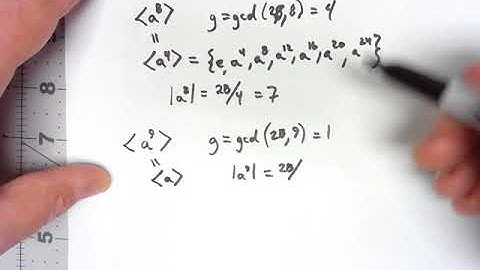 ⟨a⁸⟩ g = gcd(28, 8) = 4
=
⟨a⁴⟩ = {e, a⁴, a⁸, a¹², a¹⁶, a²⁰, a²⁴}
|a⁸| = 28/4 = 7
⟨a⁹⟩ g = gcd(28, 9) = 1
=
⟨a⟩ |a⁹| = 28/
8
7
6
5